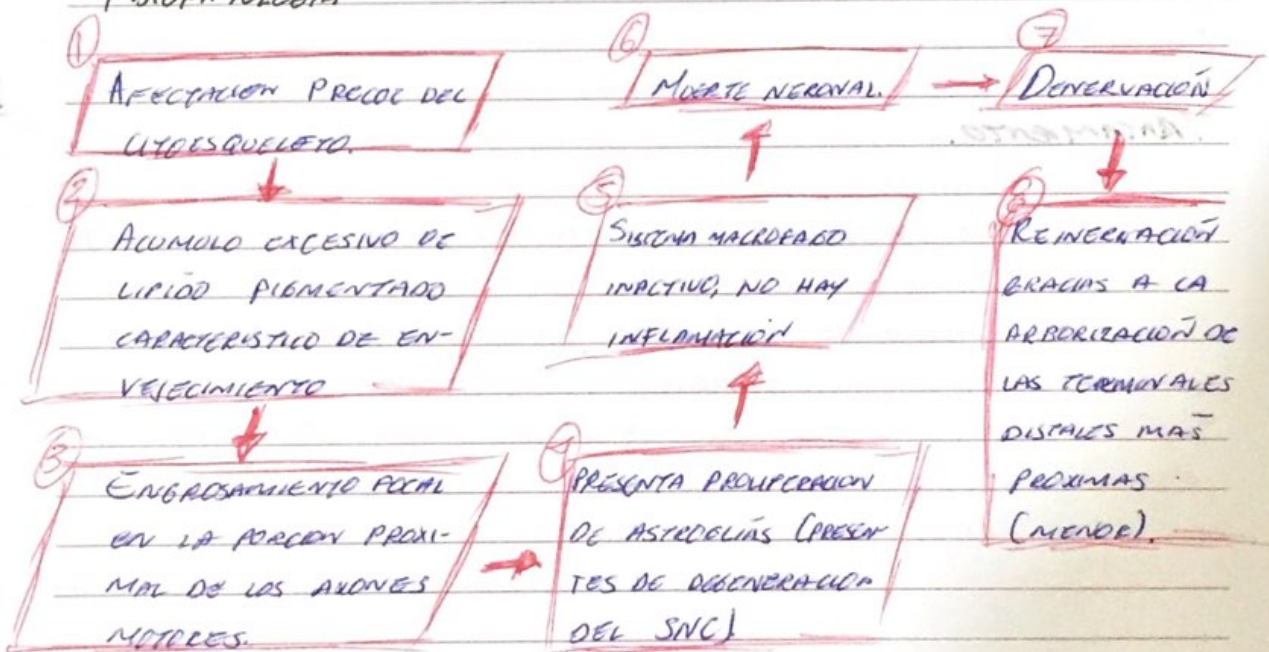 FISIOPATOLOGÍA
1
AFECTACION PRECOZ DEL
CITOESQUELETO.
2
ACUMULO EXCESIVO DE
LIPIDO PIGMENTADO
CARACTERISTICO DE EN-
VEJECIMIENTO
3
ENGROSAMIENTO FOCAL
EN LA PORCION PROXI-
MAL DE LOS AXONES
MOTORES.
4
PRESENTA PROLIFERACION
DE ASTROGLÍAS (PRESEN
TES DE DEGENERACION
DEL SNC)
5
SISTEMA MACROFAGO
INACTIVO, NO HAY
INFLAMACIÓN
6
MUERTE NERONAL.
7
DENERVACIÓN
8
REINERVACIÓN
GRACIAS A LA
ARBORIZACIÓN DE
LAS TERMINALES
DISTALES MAS
PROXIMAS
(MENOR).